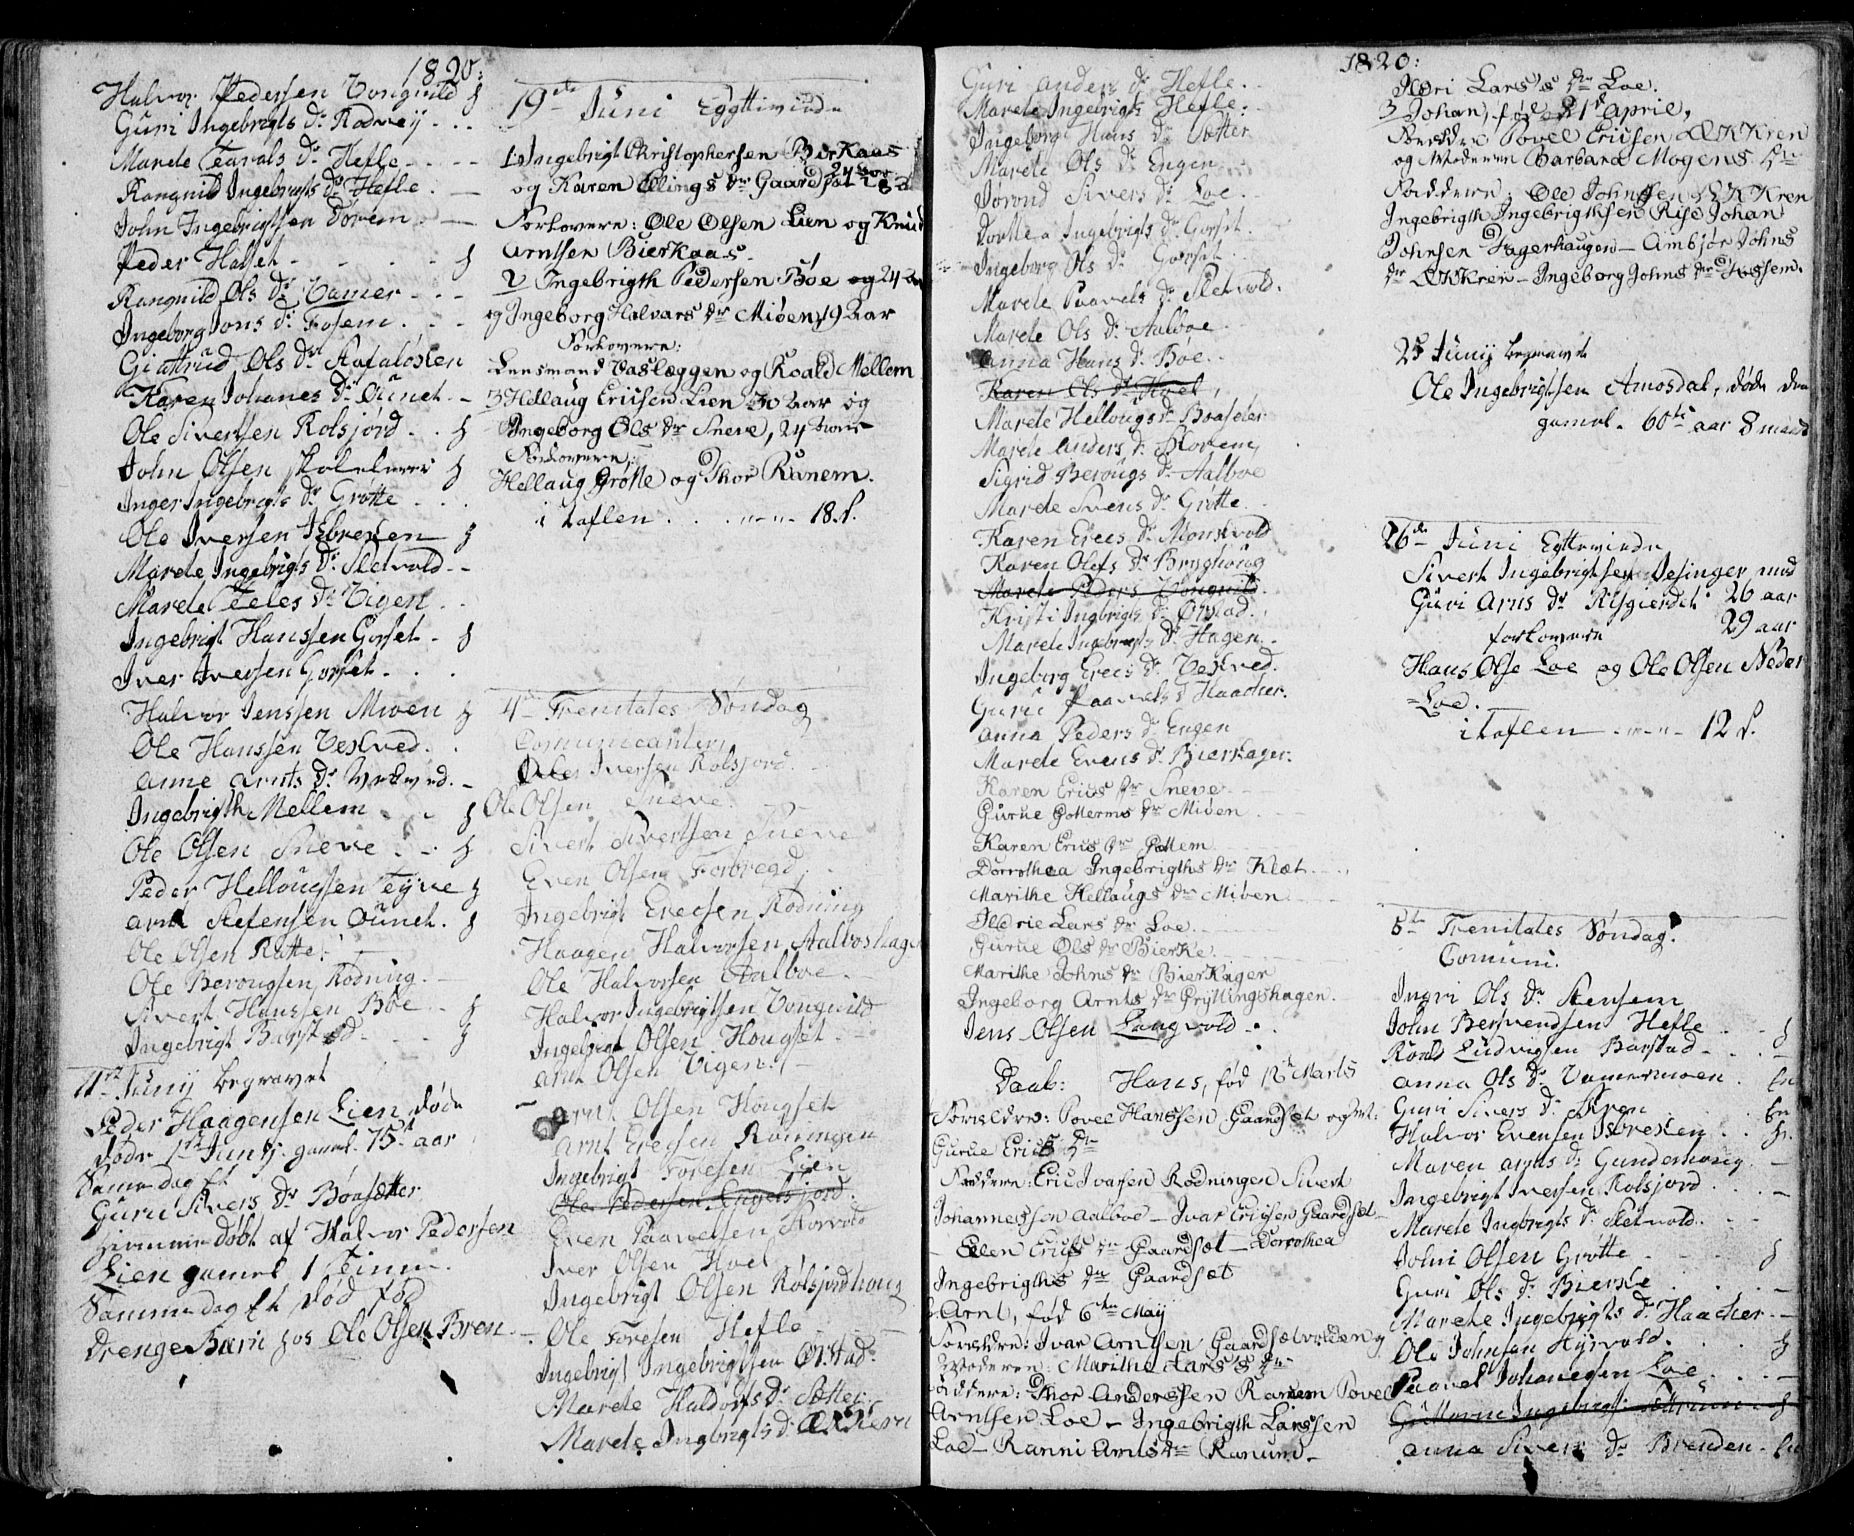 1820:
Halvor Pedersen Vongvild
Guri Ingebrigts Dr Rodvej
Marete Taarals Dr Hefle
Rangnild Ingebrigts Dr Hefle
John Ingebrigtsen Dorem
Peder Hafset
Rangnild Ols Dr Vamer
Ingeborg Jons Dr Fosem
Giertrud Ols Dr
Karen Johanes Dr Øunet
Ole Sivertsen Rolsjord
John Olsen skolelærer
Inger Ingebrigts Dr Grøtte
Ole Iversen
Marete Ingebrigts Dr Sletvold
Marete Teles Dr Vigen
Ingebrigt Hanssen Gorset
Iver Iversen Gorset
Halvor Jenssen Mioen
Ole Hanssen Vekved
Anne Arnts Dr Vekved
Ingebrigth Mellem
Ole Olsen Sneve
Peder Hellougsen Tejve
Arnt Stefensen Øunet
Ole Olsen Rotte
Ole Berougsen Rodning
Sivert Hanssen Boe
Ingebrigt Barstad
11te Junij begravet
Peder Haagensen Lien døde
døde 1ste Junij gamel 75t aar
Samme dag ft
Guru Sivers Dr Boasætter
hjemmedøbt af Halvor Pedersen
Lien gamel 1 Time
Samme dag ft død fød
Drenge Barn hos Ole Olsen Bren
19de Juni Egtteviede
1 Ingebrigt Christophersen Birkaas
24 aar
og Karen Ellings Dr Gaardsæt
Forlovere: Ole Olsen Lien og Knud
Arntsen Bierkaas
2 Ingebrigth Pedersen Bøe og 24 aar
og Ingeborg Halvars Dr Miøen, 19 aar
Forlovere:
Lensmand Vaslæggen og Roald Mellem
3 Hellaug Ericsen Lien 30 aar og
Ingeborg Ols Dr Sneve, 24 aar
Forlovere:
Hellaug Grøtte og Thor Ranem.
i Taflen . . . 18 s.
4de Trenitates Søndag
Comunicanter
Iversen Rolsjord
Ole Olsen Sneve
Sivert Sivertsen Sneve
Even Olsen Forbregd
Ingebrigt Erecsen Rodning
Haagen Halvorsen Aalboshage
Ole Halvorsen Aalboe
Halvor Ingebrigtsen Vongvild
Ingebrigt Olsen Hougset
Arnt Olsen Vigen
Arnt Olsen Hougset
Arnt Erecsen Roningen
Ingebrigt Foresen Lien
Ole Pedersen Engelsjord
Even Paavelsen Storvold
Iver Olsen Hoel
Ingebrigt Olsen Rolsjordhoug
Ole Foresen Hefle
Ingebrigt Ingebrigtsen Ørstad
Marete Haldors Dr Sætter
Marete Ingbrigts Dr
1820:
Guri Anders Dr Hefle
Marete Ingebrigts Hefle
Ingeborg Hans Dr Sætter
Marete Ols Dr Engen
Jorond Sivers Dr Loe
Dorthea Ingebrigts Dr Gorset
Ingeborg Ols Dr Gorset
Marete Paavels Dr Sletvold
Marete Ols Dr Aalboe
Anna Hans Dr Bøe
Karen Ols Dr Hoel
Marete Hellougs Dr Boaseter
Marete Anders Dr Storem
Sigrid Berougs Dr Aalboe
Marete Svens Dr Grøtte
Karen Erecs Dr Monsvold
Karen Olefs Dr Brughoug
Marete Peders Vongvild
Kristi Ingbrigts Dr Ørstad
Marete Ingebrigts Dr Hagen
Ingeborg Erecs Dr Vekved
Guru Paavels Dr Haacker
Anna Peders Dr Engen
Marete Evens Dr Bierkager
Karen Erics Dr Sneve
Gurue Gollerms Dr Miøen
Karen Erics Dr Gollem
Dorrothea Ingebrigths Dr Klæt
Marithe Hellaugs Dr Miøen
Lars Dr Loe
Gurue Ols Dr Bierke
Marithe Johns Dr Bierkager
Ingeborg Arnts Dr Gryttingshagen
Jens Olsen Langvold
Daab: Hans, fød 12te Marts
Forældre: Povel Hanssen Gaardsæt og M:
Gurue Erics Dr
Faddere: Eric Ivarsen Rodningen Sivert
Johannessen Aalboe – Ivar Ericsen Gaardsæt
Elen Erics Dr Gaardsæt – Dorrothea
Ingebrigths Dr Gaardsæt
2 Arnt, fød 6te May
Forældre: Ivar Arntsen Gaardsætvolden og
Moderen: Marithe Lars's Dr
Faddere: Thor Anderssen Ranem Povel
Arntsen Loe – Ingebrigth Larssen
Loe – Ranni Arnts Dr Ranum.
Lars's Dr Loe.
3 Johan, fød 21de April,
Forældre Povel Ericsen
og Moderen Barbara Mogens Dr
Faddere: Ole Johnsen
Ingebrigth Ingebrigthsen Rise Johan
Johnsen Hagerhaugen – Ambjør Johns
Dr – Ingeborg Johns Dr Fossem.
25 Junij begravet
Ole Ingebrigtsen Amosdal, døde den
gamel. 60te aar 8 maad
26de Juni Egtteviede
Sivert Ingebrigtsen med
Guri Arns Dr Risgierdet 26 aar
forlovere 29 aar
Hans Olse Loe og Ole Olsen Neder
=Loe.
i Taflen . . . 12 s.
5te Trenitates Søndag.
Comuni.
Ingri Ols Dr Stensem
John Bersvendsen Hefle
Roald Ludvigsen Barstad
Anna Ols Dr Vamermoen
Guri Sivers Dr Skren
Halvor Evensen
Maren Arnts Dr Gunderhoug
Ingebrigt Iversen Rolsjord
Marete Ingbrigts Dr Sletvold
John Olsen Grøtte
Guri Ols Dr Bierke
Marete Ingebrigts Dr Haacker
Ole Johnsen Hyrvold
Paavel Johanesen Loe
Anna Sivers Dr Brenden